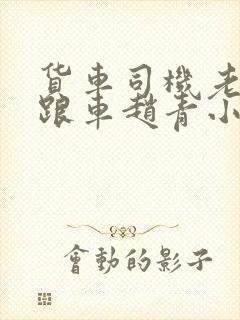 货車司機老
跟車趙青小
會動的影子